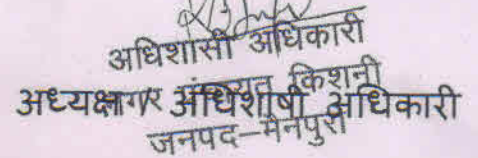 अधिशासी अधिकारी
नगर पंचायत किशनी
अध्यक्ष अधिशाषी अधिकारी
जनपद–मैनपुरी